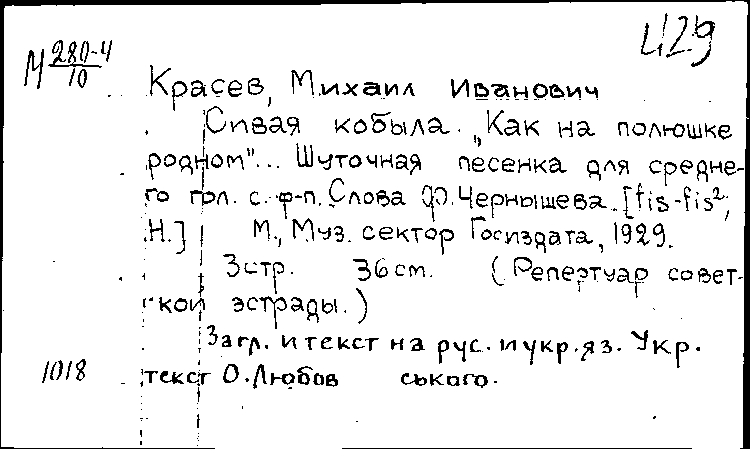 М 280-4/10
429
Красев, Михаил Иванович
Сивая кобыла. „Как на полюшке
родном"... Шуточная песенка для средне-
го гол. с ф-п. Слова Ф. Чернышева. [fis-fis²;
Н.] М., Муз. сектор Госиздата, 1929.
3 стр. 36 см. (Репертуар совет-
ской эстрады.)
Загл. и текст на рус. и укр. яз. Укр.
1018 текст О. Любов ського.